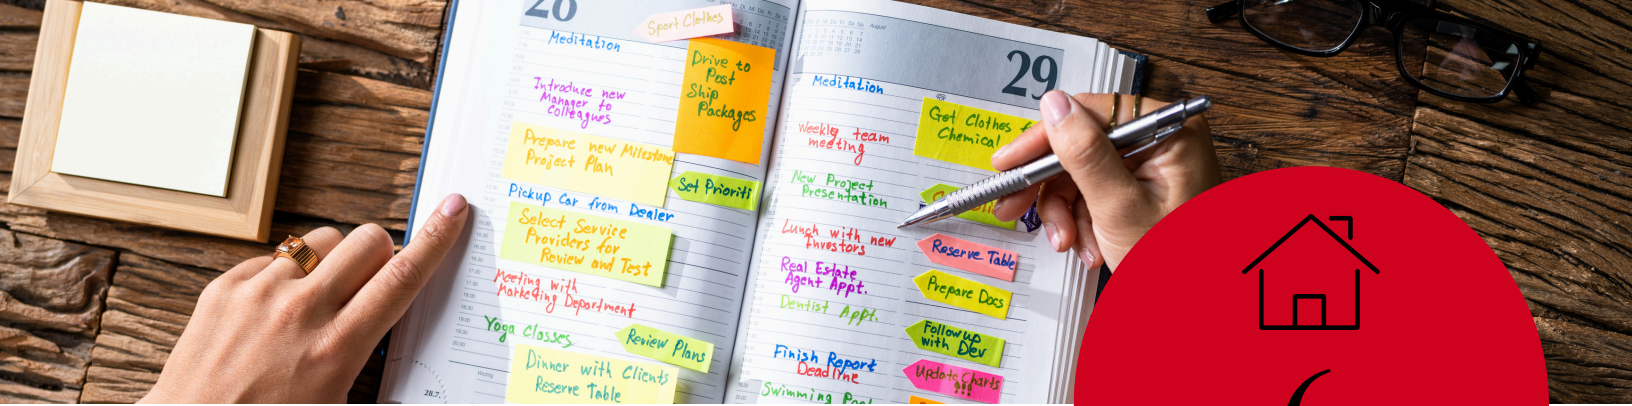 28
Sport Clothes
Meditation
Drive to
Post
Ship
Packages
Introduce new
Manager to
Colleagues
Prepare new Milestone
Project Plan
Set Prioriti
Pickup Car from Dealer
Select Service
Providers for
Review and Test
Meeting with
Marketing Department
Yoga Classes
Review Plans
Dinner with Clients
Reserve Table
28.7.
August
29
Meditation
Get Clothes f
Chemical
Weekly team
meeting
New Project
Presentation
Lunch with new
Investors
Reserve Table
Real Estate
Agent Appt.
Prepare Docs
Dentist Appt.
Follow up
with Dev
Finish Report
Deadline
Update Charts
!!!
Swimming Pool